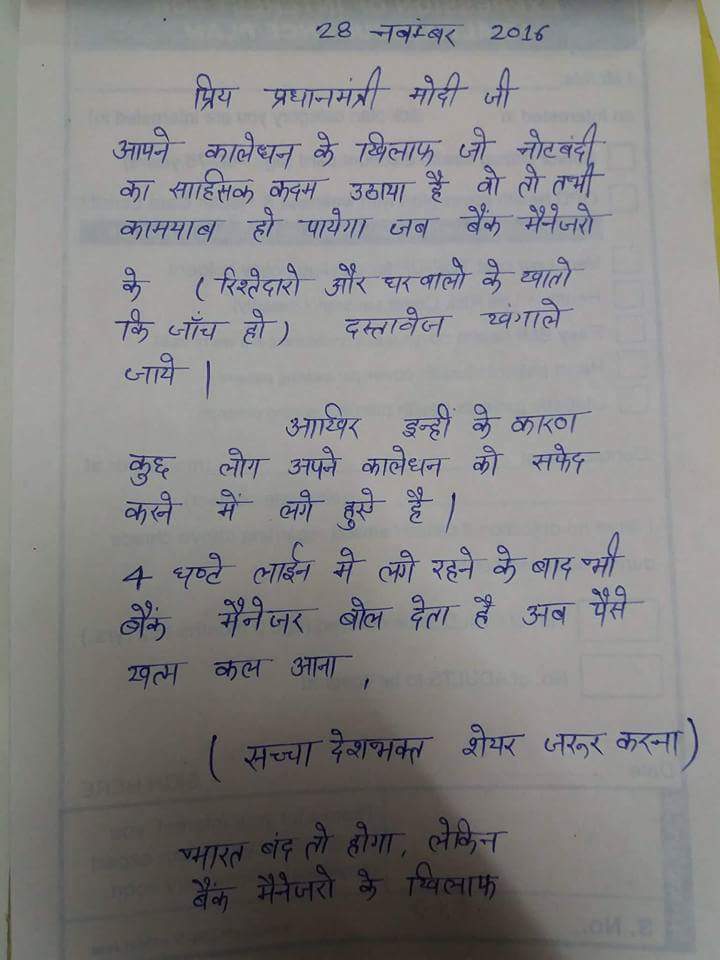 28 नवंम्बर 2016
प्रिय प्रधानमंत्री मोदी जी
आपने कालेधन के खिलाफ जो नोटबंदी
का साहिसक कदम उठाया है वो तो तभी
कामयाब हो पायेगा जब बैंक मैनेजरो
के (रिश्तेदारो और घरवालो के खातो
कि जाँच हो) दस्तावेज खंगाले
जाये |
आखिर इन्हीं के कारण
कुछ लोग अपने कालेधन को सफेद
करने में लगे हुऐ है |
4 घण्टे लाईन मे लगे रहने के बाद भी
बैंक मैनेजर बोल देता है अब पैसे
खत्म कल आना,
(सच्चा देशभक्त शेयर जरूर करना)
भारत बंद तो होगा, लेकिन
बैंक मैनेजरो के खिलाफ